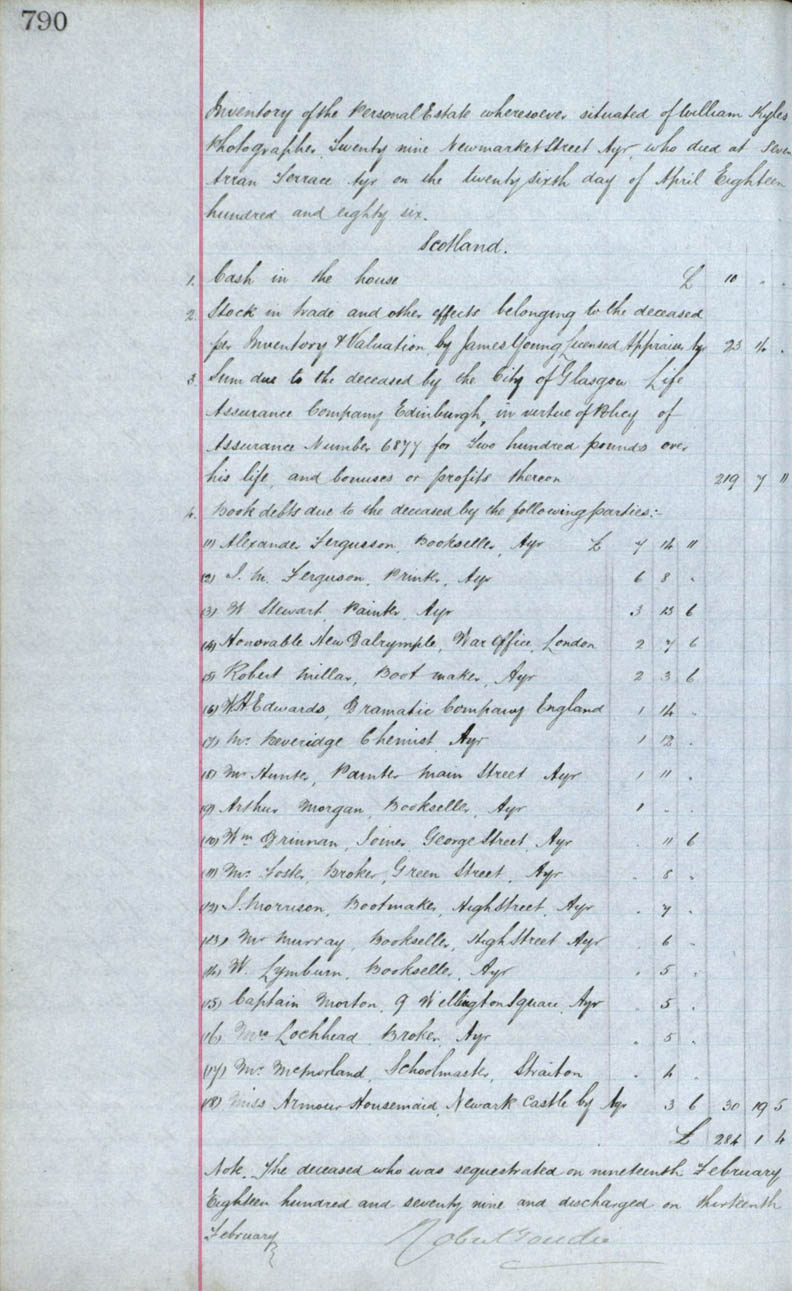 790
Inventory of the Personal Estate wheresoever situated of William Kyles
Photographer, Twenty nine Newmarket Street Ayr, who died at Seven
Arran Terrace Ayr on the twenty sixth day of April Eighteen
hundred and eighty six.
Scotland.
1. Cash in the house £ 10 . .
2. Stock in trade and other effects belonging to the deceased
per Inventory & Valuation by James Young Licensed Appraiser Ayr 23 14 .
3. Sum due to the deceased by the City of Glasgow Life
Assurance Company Edinburgh, in virtue of Policy of
Assurance Number 6877 for Two hundred pounds over
his life, and bonuses or profits thereon 219 7 11
4. Book debts due to the deceased by the following parties:-
(1) Alexander Fergusson, Bookseller, Ayr £ 7 14 11
(2) J. M. Ferguson, Printer, Ayr 6 8 .
(3) W Stewart Painter, Ayr 3 13 6
(4) Honorable New Dalrymple, War Office, London 2 7 6
(5) Robert Millar, Boot maker, Ayr 2 3 6
(6) W.H. Edwards, Dramatic Company England 1 14 .
(7) Mr Beveridge Chemist, Ayr 1 12 .
(8) Mr Hunter, Painter Main Street Ayr 1 11 .
(9) Arthur Morgan, Bookseller, Ayr 1 . .
(10) Wm Drinnan, Joiner, George Street, Ayr . 11 6
(11) Mr Foster, Broker, Green Street, Ayr . 8 .
(12) J. Morrison, Bootmaker, High Street, Ayr . 7 .
(13) Mr Murray, Bookseller, High Street Ayr . 6 .
(14) W. Lymburn, Bookseller, Ayr . 5 .
(15) Captain Morton, 9 Wellington Square, Ayr . 5 .
(16) Mrs Lochhead Broker, Ayr . 5 .
(17) Mr McMorland, Schoolmaster, Straiton . 4 .
(18) Miss Armour Housemaid, Newark Castle by Ayr 3 6 30 19 5
£ 284 1 4
Note. The deceased who was sequestrated on nineteenth February
Eighteen hundred and seventy nine and discharged on thirteenth
February
Robert Goudie